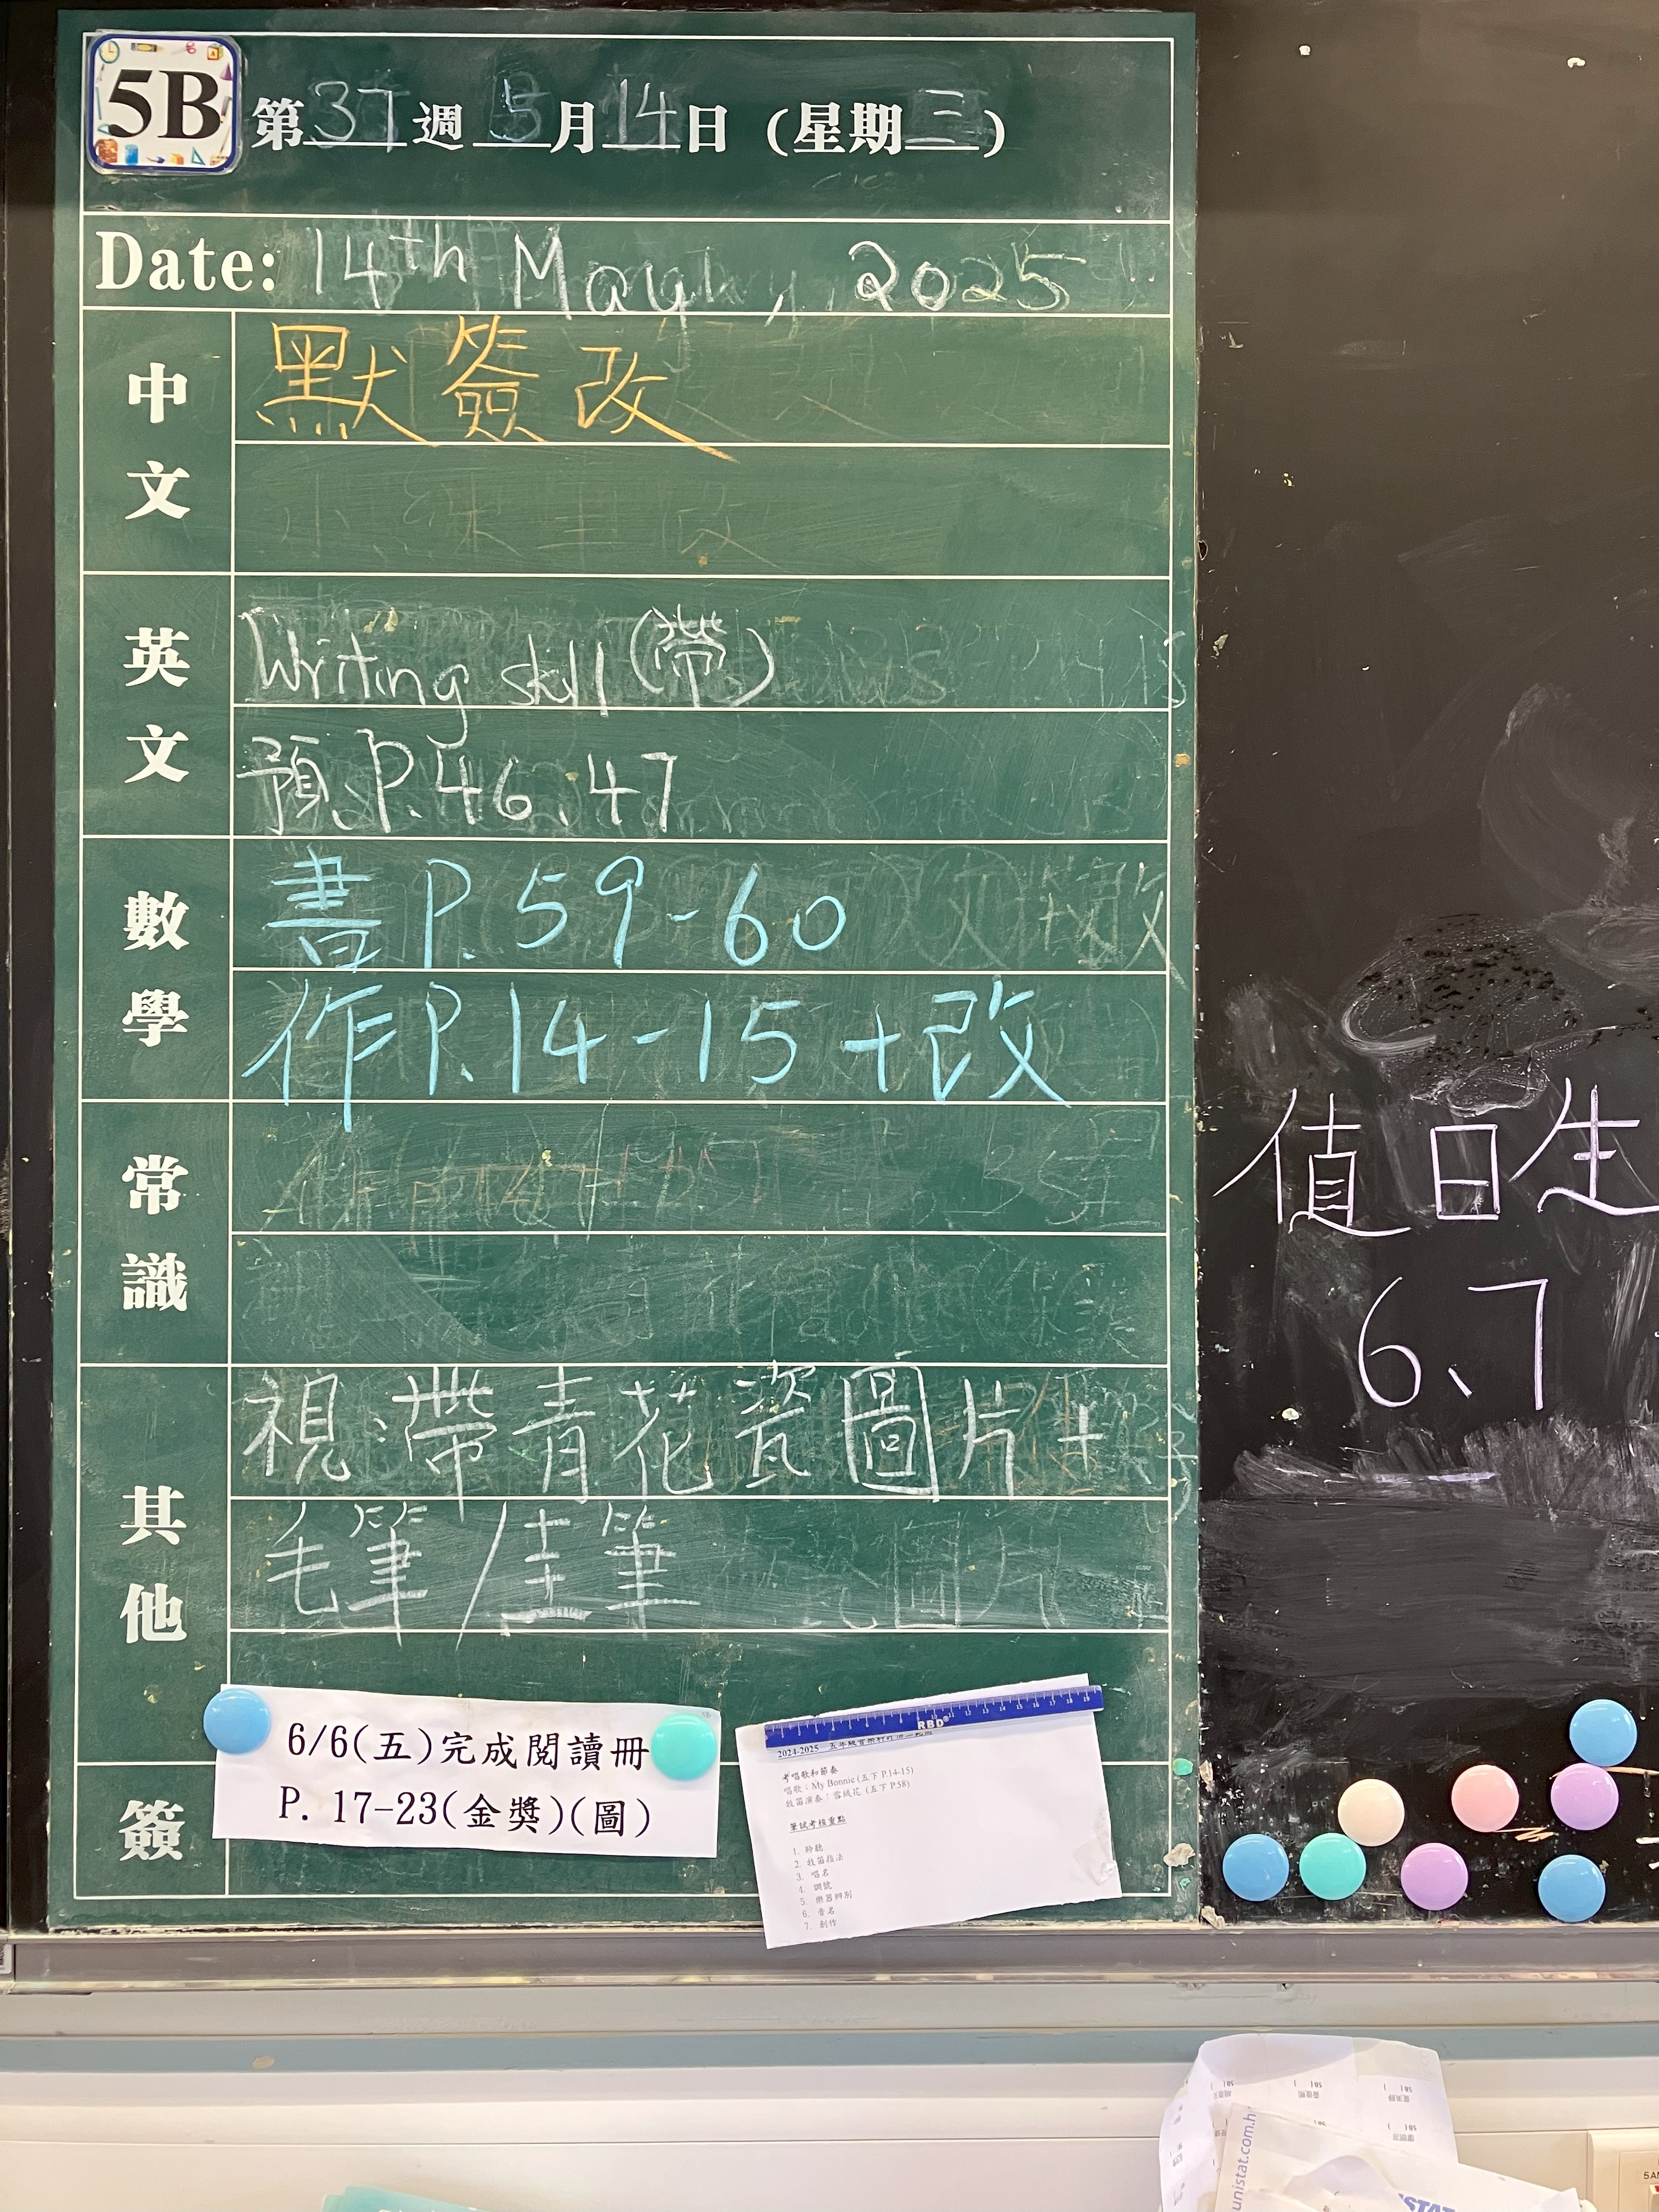 5B 第37週 5月14日 (星期三)
Date: 14th May, 2025
中文
默簽改
英文
Writing skill (帶)
預 P.46、47
數學
書 P.59-60
作 P.14-15 + 改
常識
其他
視:帶青花瓷圖片+
毛筆/圭筆
簽
6/6(五)完成閱讀冊
P. 17-23(金獎)(圖)
RBD
2024-2025
考唱歌和節奏
唱歌:My Bonnie (五下 P.14-15)
牧笛演奏:雪絨花 (五下 P.58)
筆試考核重點
1. 聆聽
2. 牧笛指法
3. 唱名
4. 調號
5. 樂器辨別
6. 音名
7. 創作
值日生
6、7
unistat.com.h